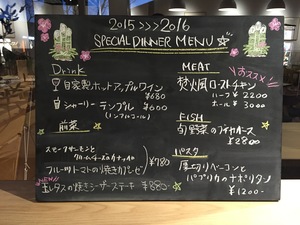 2015>>>2016
SPECIAL DINNER MENU
Drink
自家製ホットアップルワイン
¥680
シャーリーテンプル ¥600
(ノンアルコール)
前菜
スモークサーモンと
クリームチーズのカナッペ
フルーツトマトの焼きカプレーゼ
¥780
NEW!
丸レタスの焼きシーザーステーキ ¥880-
MEAT
おススメ
焚火風ローストチキン
ハーフ ¥2200
ホール ¥3000
FISH
旬野菜のブイヤベース
¥2800
パスタ
厚切りベーコンと
パプリカのナポリタン
¥1200-